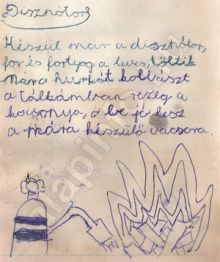 Disznótor
Készül már a disznótor,
forr és fortyog a leves, töltik
Mára hurkát kolbászt
a tálkámban rezeg a
kocsonya, ó be jó lesz
a mára készülő vacsora.